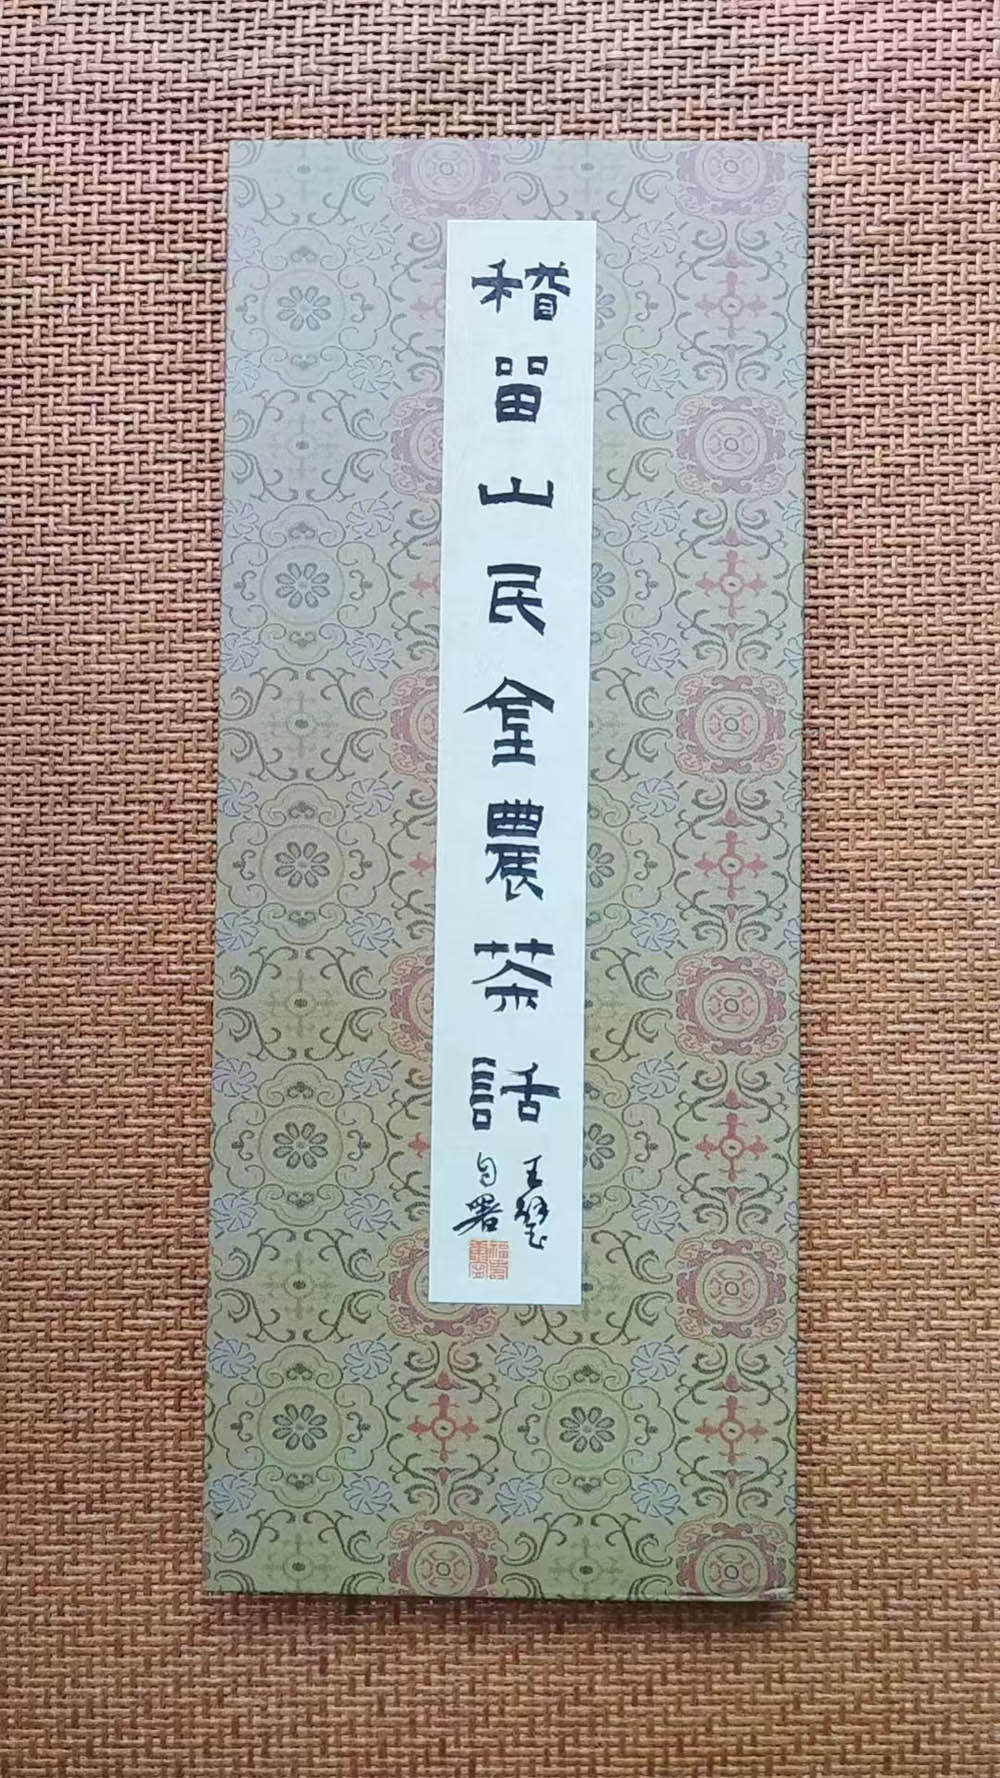 稽畱山民金農茶話
王璧
自署